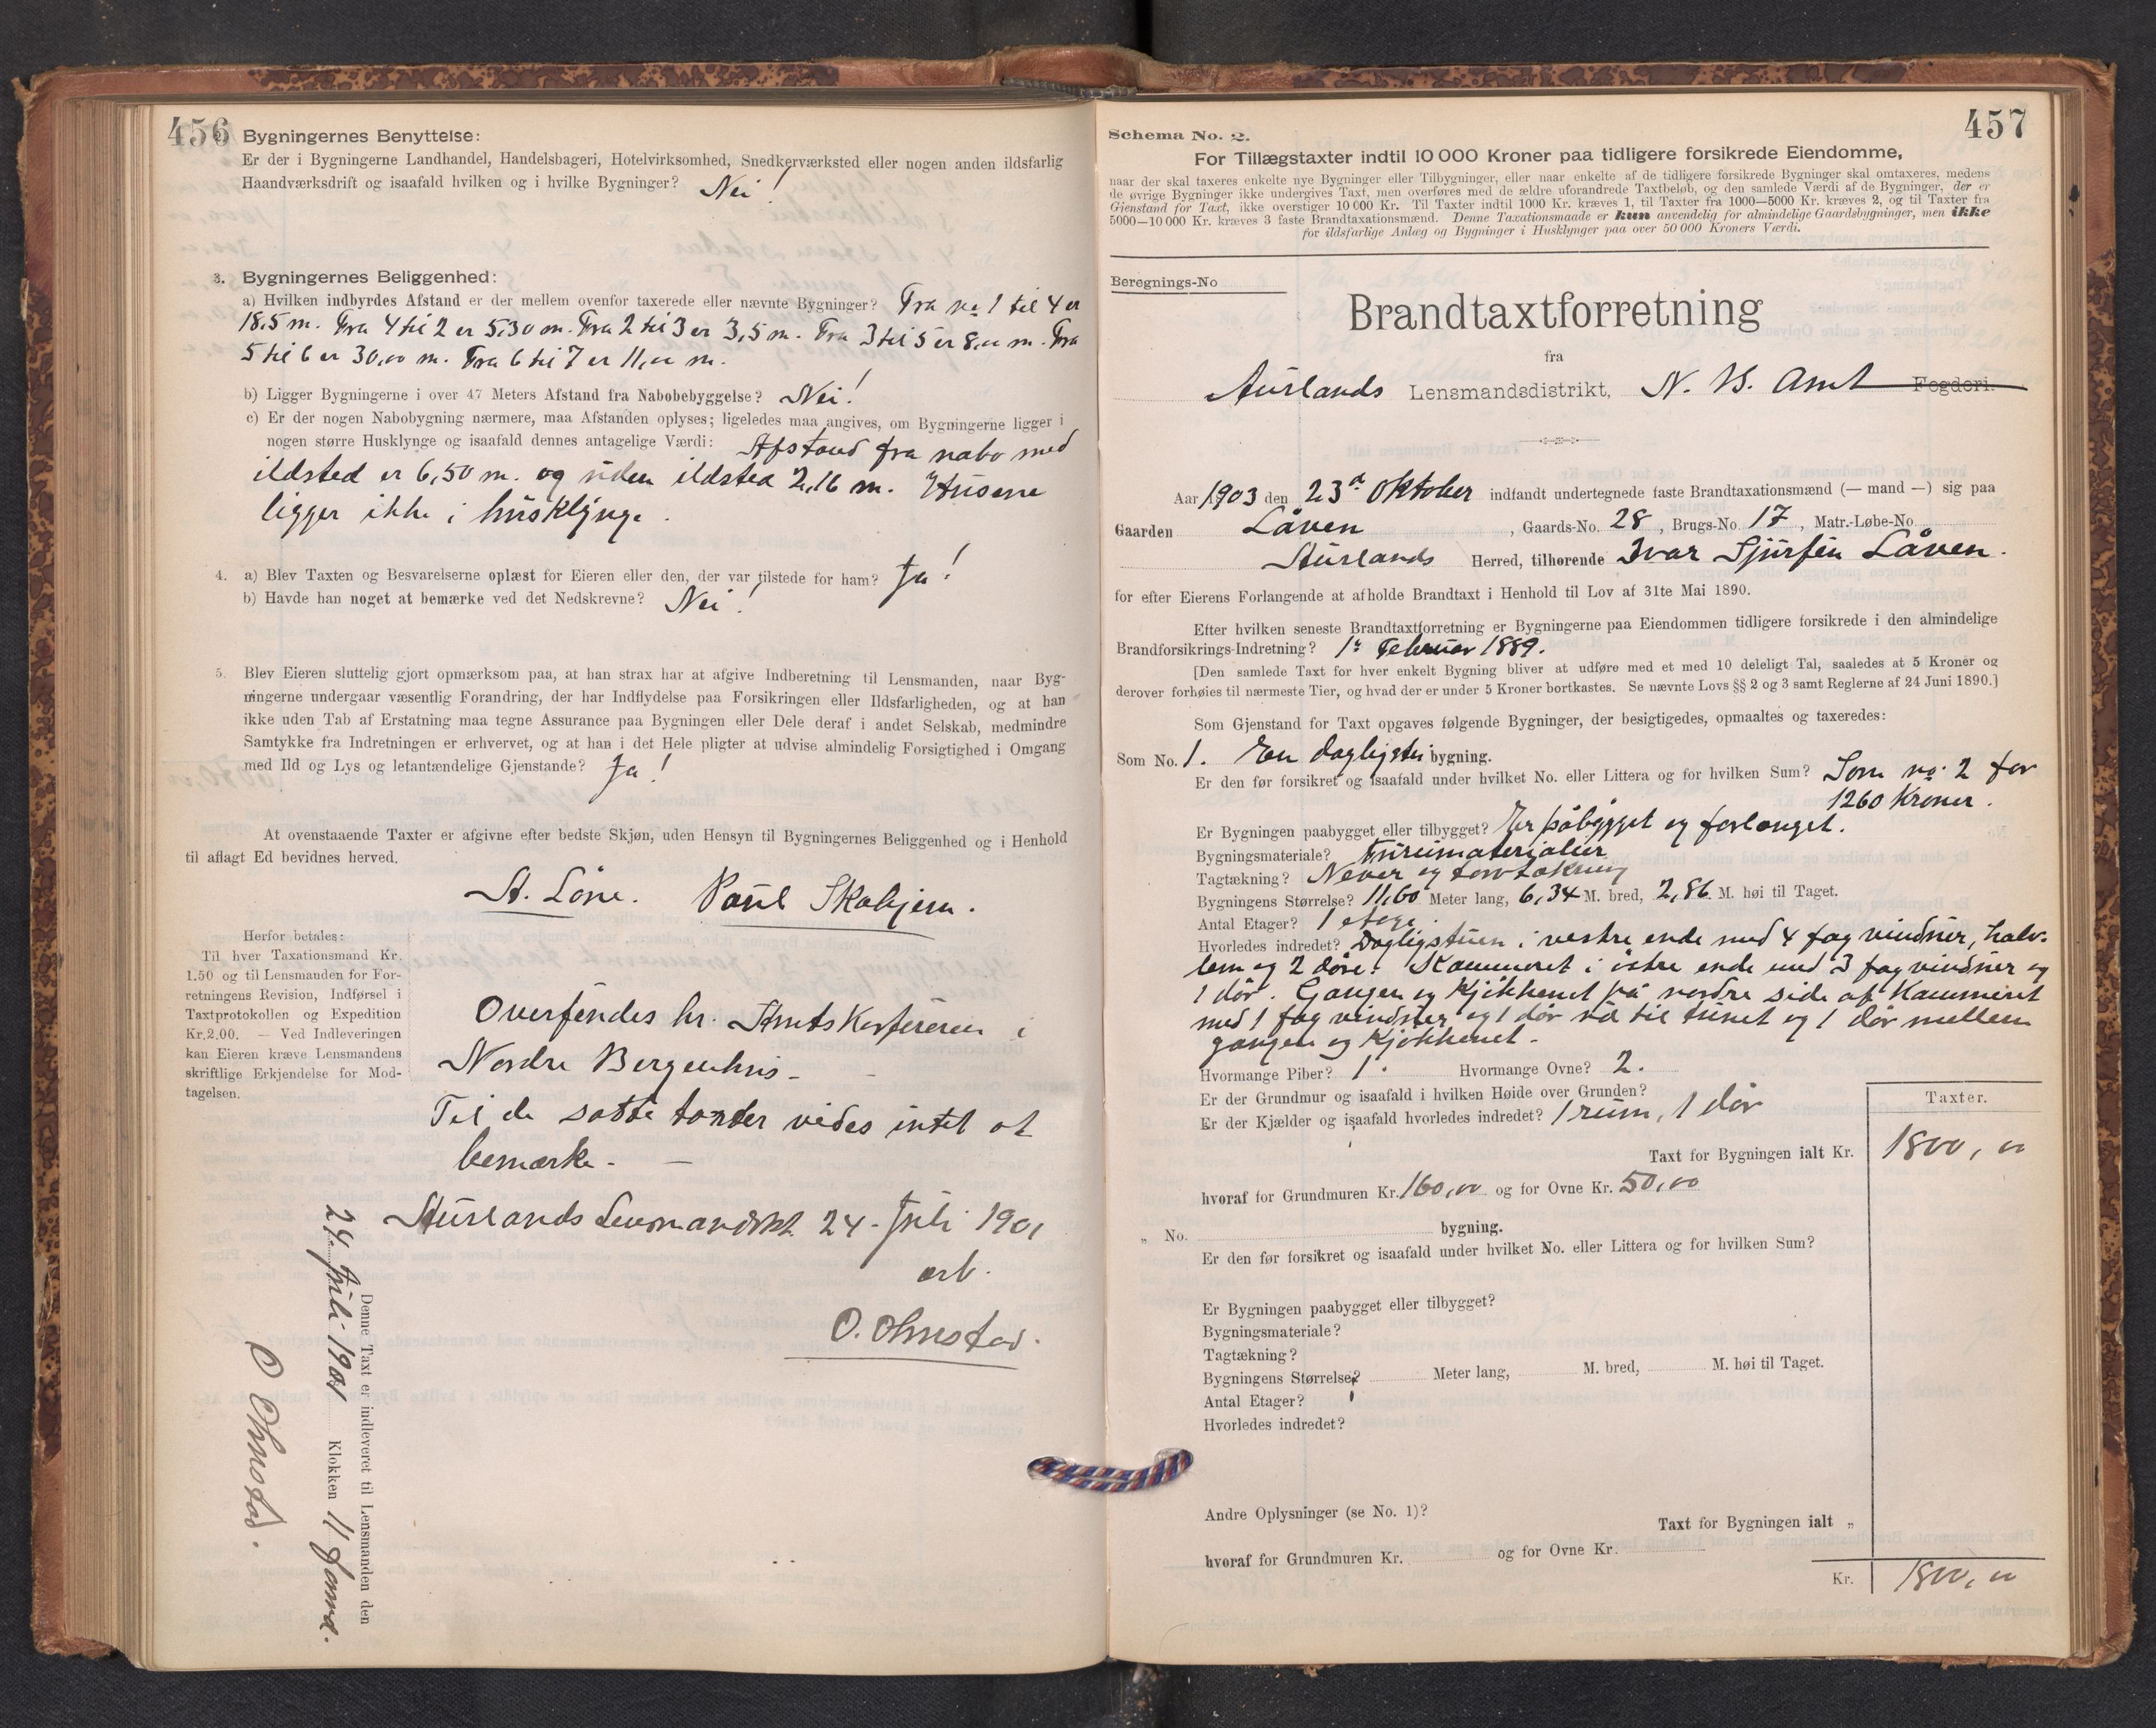 456
Bygningernes Benyttelse:
Er der i Bygningerne Landhandel, Handelsbageri, Hotelvirksomhed, Snedkerværksted eller nogen anden ildsfarlig
Haandværksdrift og isaafald hvilken og i hvilke Bygninger? Nei!
3. Bygningernes Beliggenhed:
a) Hvilken indbyrdes Afstand er der mellem ovenfor taxerede eller nævnte Bygninger? Fra no 1 til 4 er
18,5 m. Fra 4 til 2 er 5,30 m. Fra 2 til 3 er 3,5 m. Fra 3 til 5 er 8,00 m. Fra
5 til 6 er 30,00 m. Fra 6 til 7 er 11,00 m.
b) Ligger Bygningerne i over 47 Meters Afstand fra Nabobebyggelse? Nei!
c) Er der nogen Nabobygning nærmere, maa Afstanden oplyses; ligeledes maa angives, om Bygningerne ligger i
nogen større Husklynge og isaafald dennes antagelige Værdi: Afstand fra nabo med
ildsted er 6,50 m. og uden ildsted 2,16 m. Husene
ligger ikke i husklynge.
4. a) Blev Taxten og Besvarelserne oplæst for Eieren eller den, der var tilstede for ham? Ja!
b) Havde han noget at bemærke ved det Nedskrevne? Nei!
5. Blev Eieren sluttelig gjort opmærksom paa, at han strax har at afgive Indberetning til Lensmanden, naar Byg-
ningerne undergaar væsentlig Forandring, der har Indflydelse paa Forsikringen eller Ildsfarligheden, og at han
ikke uden Tab af Erstatning maa tegne Assurance paa Bygningen eller Dele deraf i andet Selskab, medmindre
Samtykke fra Indretningen er erhvervet, og at han i det Hele pligter at udvise almindelig Forsigtighed i Omgang
med Ild og Lys og letantændelige Gjenstande? Ja!
At ovenstaaende Taxter er afgivne efter bedste Skjøn, uden Hensyn til Bygningernes Beliggenhed og i Henhold
til aflagt Ed bevidnes herved.
A. Löne. Paul Skahjem.
Herfor betales:
Til hver Taxationsmand Kr.
1.50 og til Lensmanden for For-
retningens Revision, Indførsel i
Taxtprotokollen og Expedition
Kr. 2.00. — Ved Indleveringen
kan Eieren kræve Lensmandens
skriftlige Erkjendelse for Mod-
tagelsen.
Oversendes hr. Amtskasserer i
Nordre Bergenhus -
Til de satte taxter vides intet at
bemærke. -
Aurlands Lensmandskt. 24 - Juli 1901
ærb.
O. Ohnstad.
Denne Taxt er indleveret til Lensmanden den
24. Juli 1901 Klokken 11 formd.
O Ohnstad.
457
Schema No. 2.
For Tillægstaxter indtil 10 000 Kroner paa tidligere forsikrede Eiendomme,
naar der skal taxeres enkelte nye Bygninger eller Tilbygninger, eller naar enkelte af de tidligere forsikrede Bygninger skal omtaxeres, medens
de øvrige Bygninger ikke undergives Taxt, men overføres med de ældre uforandrede Taxtbeløb, og den samlede Værdi af de Bygninger, der er
Gjenstand for Taxt, ikke overstiger 10 000 Kr. Til Taxter indtil 1000 Kr. kræves 1, til Taxter fra 1000—5000 Kr. kræves 2, og til Taxter fra
5000—10 000 Kr. kræves 3 faste Brandtaxationsmænd. Denne Taxationsmaade er kun anvendelig for almindelige Gaardsbygninger, men ikke
for ildsfarlige Anlæg og Bygninger i Husklynger paa over 50 000 Kroners Værdi.
Beregnings-No
Brandtaxtforretning
fra
Aurlands Lensmandsdistrikt, N. B. Amt Fogderi.
Aar 1903 den 23de Oktober indfandt undertegnede faste Brandtaxationsmænd (— mand —) sig paa
Gaarden Låven, Gaards-No. 28, Brugs-No. 17, Matr.-Løbe-No.
Aurlands Herred, tilhørende Ivar Sjursen Låven.
for efter Eierens Forlangende at afholde Brandtaxt i Henhold til Lov af 31te Mai 1890.
Efter hvilken seneste Brandtaxtforretning er Bygningerne paa Eiendommen tidligere forsikrede i den almindelige
Brandforsikrings-Indretning? 1ste Februar 1889.
[Den samlede Taxt for hver enkelt Bygning bliver at udføre med et med 10 deleligt Tal, saaledes at 5 Kroner og
derover forhøies til nærmeste Tier, og hvad der er under 5 Kroner bortkastes. Se nævnte Lovs §§ 2 og 3 samt Reglerne af 24 Juni 1890.]
Som Gjenstand for Taxt opgaves følgende Bygninger, der besigtigedes, opmaaltes og taxeredes:
Som No. 1. En dagligstu bygning.
Er den før forsikret og isaafald under hvilket No. eller Littera og for hvilken Sum? Som no. 2 for
1260 Kroner.
Er Bygningen paabygget eller tilbygget? Er påbygget og forlænget.
Bygningsmateriale? Furumaterialier
Tagtækning? Never og torvtækning
Bygningens Størrelse? 11,60 Meter lang, 6,34 M. bred, 2,86 M. høi til Taget.
Antal Etager? 1 etage.
Hvorledes indredet? Dagligstuen i vestre ende med 4 fag vinduer, halv-
lem og 2 döre. Kammeret i östre ende med 3 fag vinduer og
1 dör. Gangen og Kjökkenet på nordre side af Kammeret
med 1 fag vinduer og 1 dör ud til tunet og 1 dör mellem
gangen og Kjökkenet.
Hvormange Piber? 1. Hvormange Ovne? 2.
Er der Grundmur og isaafald i hvilken Høide over Grunden?
Er der Kjælder og isaafald hvorledes indredet? 1 rum, 1 dör
Taxter.
Taxt for Bygningen ialt Kr. 1800,00
hvoraf for Grundmuren Kr. 160,00 og for Ovne Kr. 50,00
„ No. bygning.
Er den før forsikret og isaafald under hvilket No. eller Littera og for hvilken Sum?
Er Bygningen paabygget eller tilbygget?
Bygningsmateriale?
Tagtækning?
Bygningens Størrelse? Meter lang, M. bred, M. høi til Taget.
Antal Etager?
Hvorledes indredet?
Andre Oplysninger (se No. 1)?
Taxt for Bygningen ialt „
hvoraf for Grundmuren Kr. og for Ovne Kr.
Kr. 1800,00